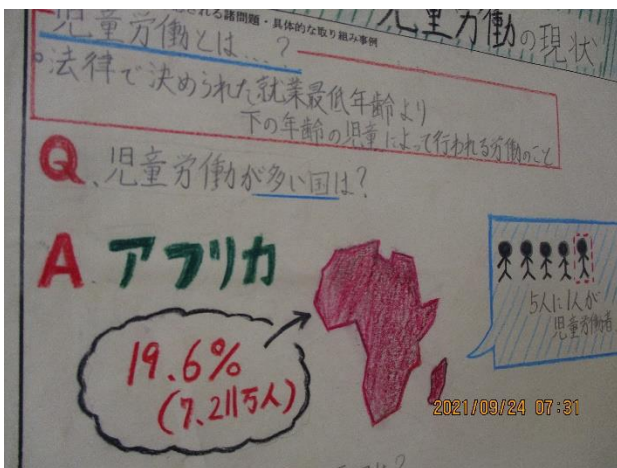 される諸問題・具体的な取り組み事例
児童労働の現状
児童労働とは...?
法律で決められた就業最低年齢より
下の年齢の児童によって行われる労働のこと
Q、児童労働が多い国は?
A アフリカ
19.6%
(7,211万人)
5人に1人が
児童労働者
2021/09/24 07:31